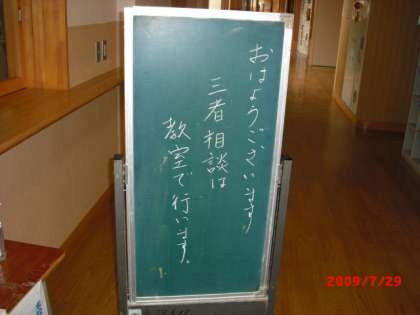 おはようございます
三者相談は
教室で行います。
2009/7/29